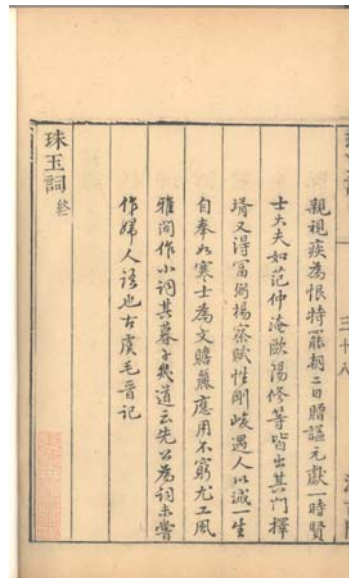 三十八
親視疾為恨特罷朝二日贈謚元獻一時賢
士大夫如范仲淹歐陽修等皆出其門擇
壻又得富弼楊察賦性剛峻遇人以誠一生
自奉如寒士為文贍麗應用不窮尤工風
雅間作小詞其暮子幾道云先公為詞未嘗
作婦人語也古虞毛晉記
珠玉詞 終